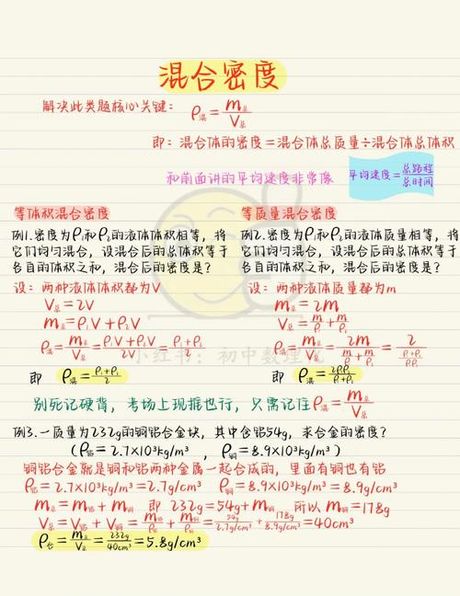 混合密度
解决此类题核心关键：ρ混=m总/V总
即：混合体的密度=混合体总质量÷混合体总体积
和前面讲的平均速度非常像 平均速度=总路程/总时间
等体积混合密度
例1.密度为ρ₁和ρ₂的液体体积相等，将
它们均匀混合，设混合后的总体积等于
各自的体积之和，混合后的密度是？
设：两种液体体积都为V
V总=2V
m总=ρ₁V+ρ₂V
ρ混=m总/V总=ρ₁V+ρ₂V/2V=ρ₁+ρ₂/2
即 ρ混=ρ₁+ρ₂/2
等质量混合密度
例2.密度为ρ₁和ρ₂的液体质量相等，将
它们均匀混合，设混合后的总体积等于
各自的体积之和，混合后的密度是？
设：两种液体质量都为m
m总=2m
V总=m/ρ₁+m/ρ₂
ρ混=m总/V总=2m/(m/ρ₁+m/ρ₂)=2/(ρ₁+ρ₂/ρ₁ρ₂)
即 ρ混=2ρ₁ρ₂/ρ₁+ρ₂
小红书：初中数理
别死记硬背，考场上现推也行，只需记住ρ混=m总/V总
例3.一质量为232g的铜铝合金块，其中含铝54g，求合金的密度？
（ρ铝=2.7×10³kg/m³，ρ铜=8.9×10³kg/m³）
铜铝合金就是铜和铝两种金属一起合成的，里面有铜也有铝
ρ铝=2.7×10³kg/m³=2.7g/cm³ ρ铜=8.9×10³kg/m³=8.9g/cm³
m总=m铝+m铜 即 232g=54g+m铜 所以m铜=178g
V总=V铝+V铜=m铝/ρ铝+m铜/ρ铜=54g/2.7g/cm³+178g/8.9g/cm³=40cm³
ρ合=m总/V总=232g/40cm³=5.8g/cm³